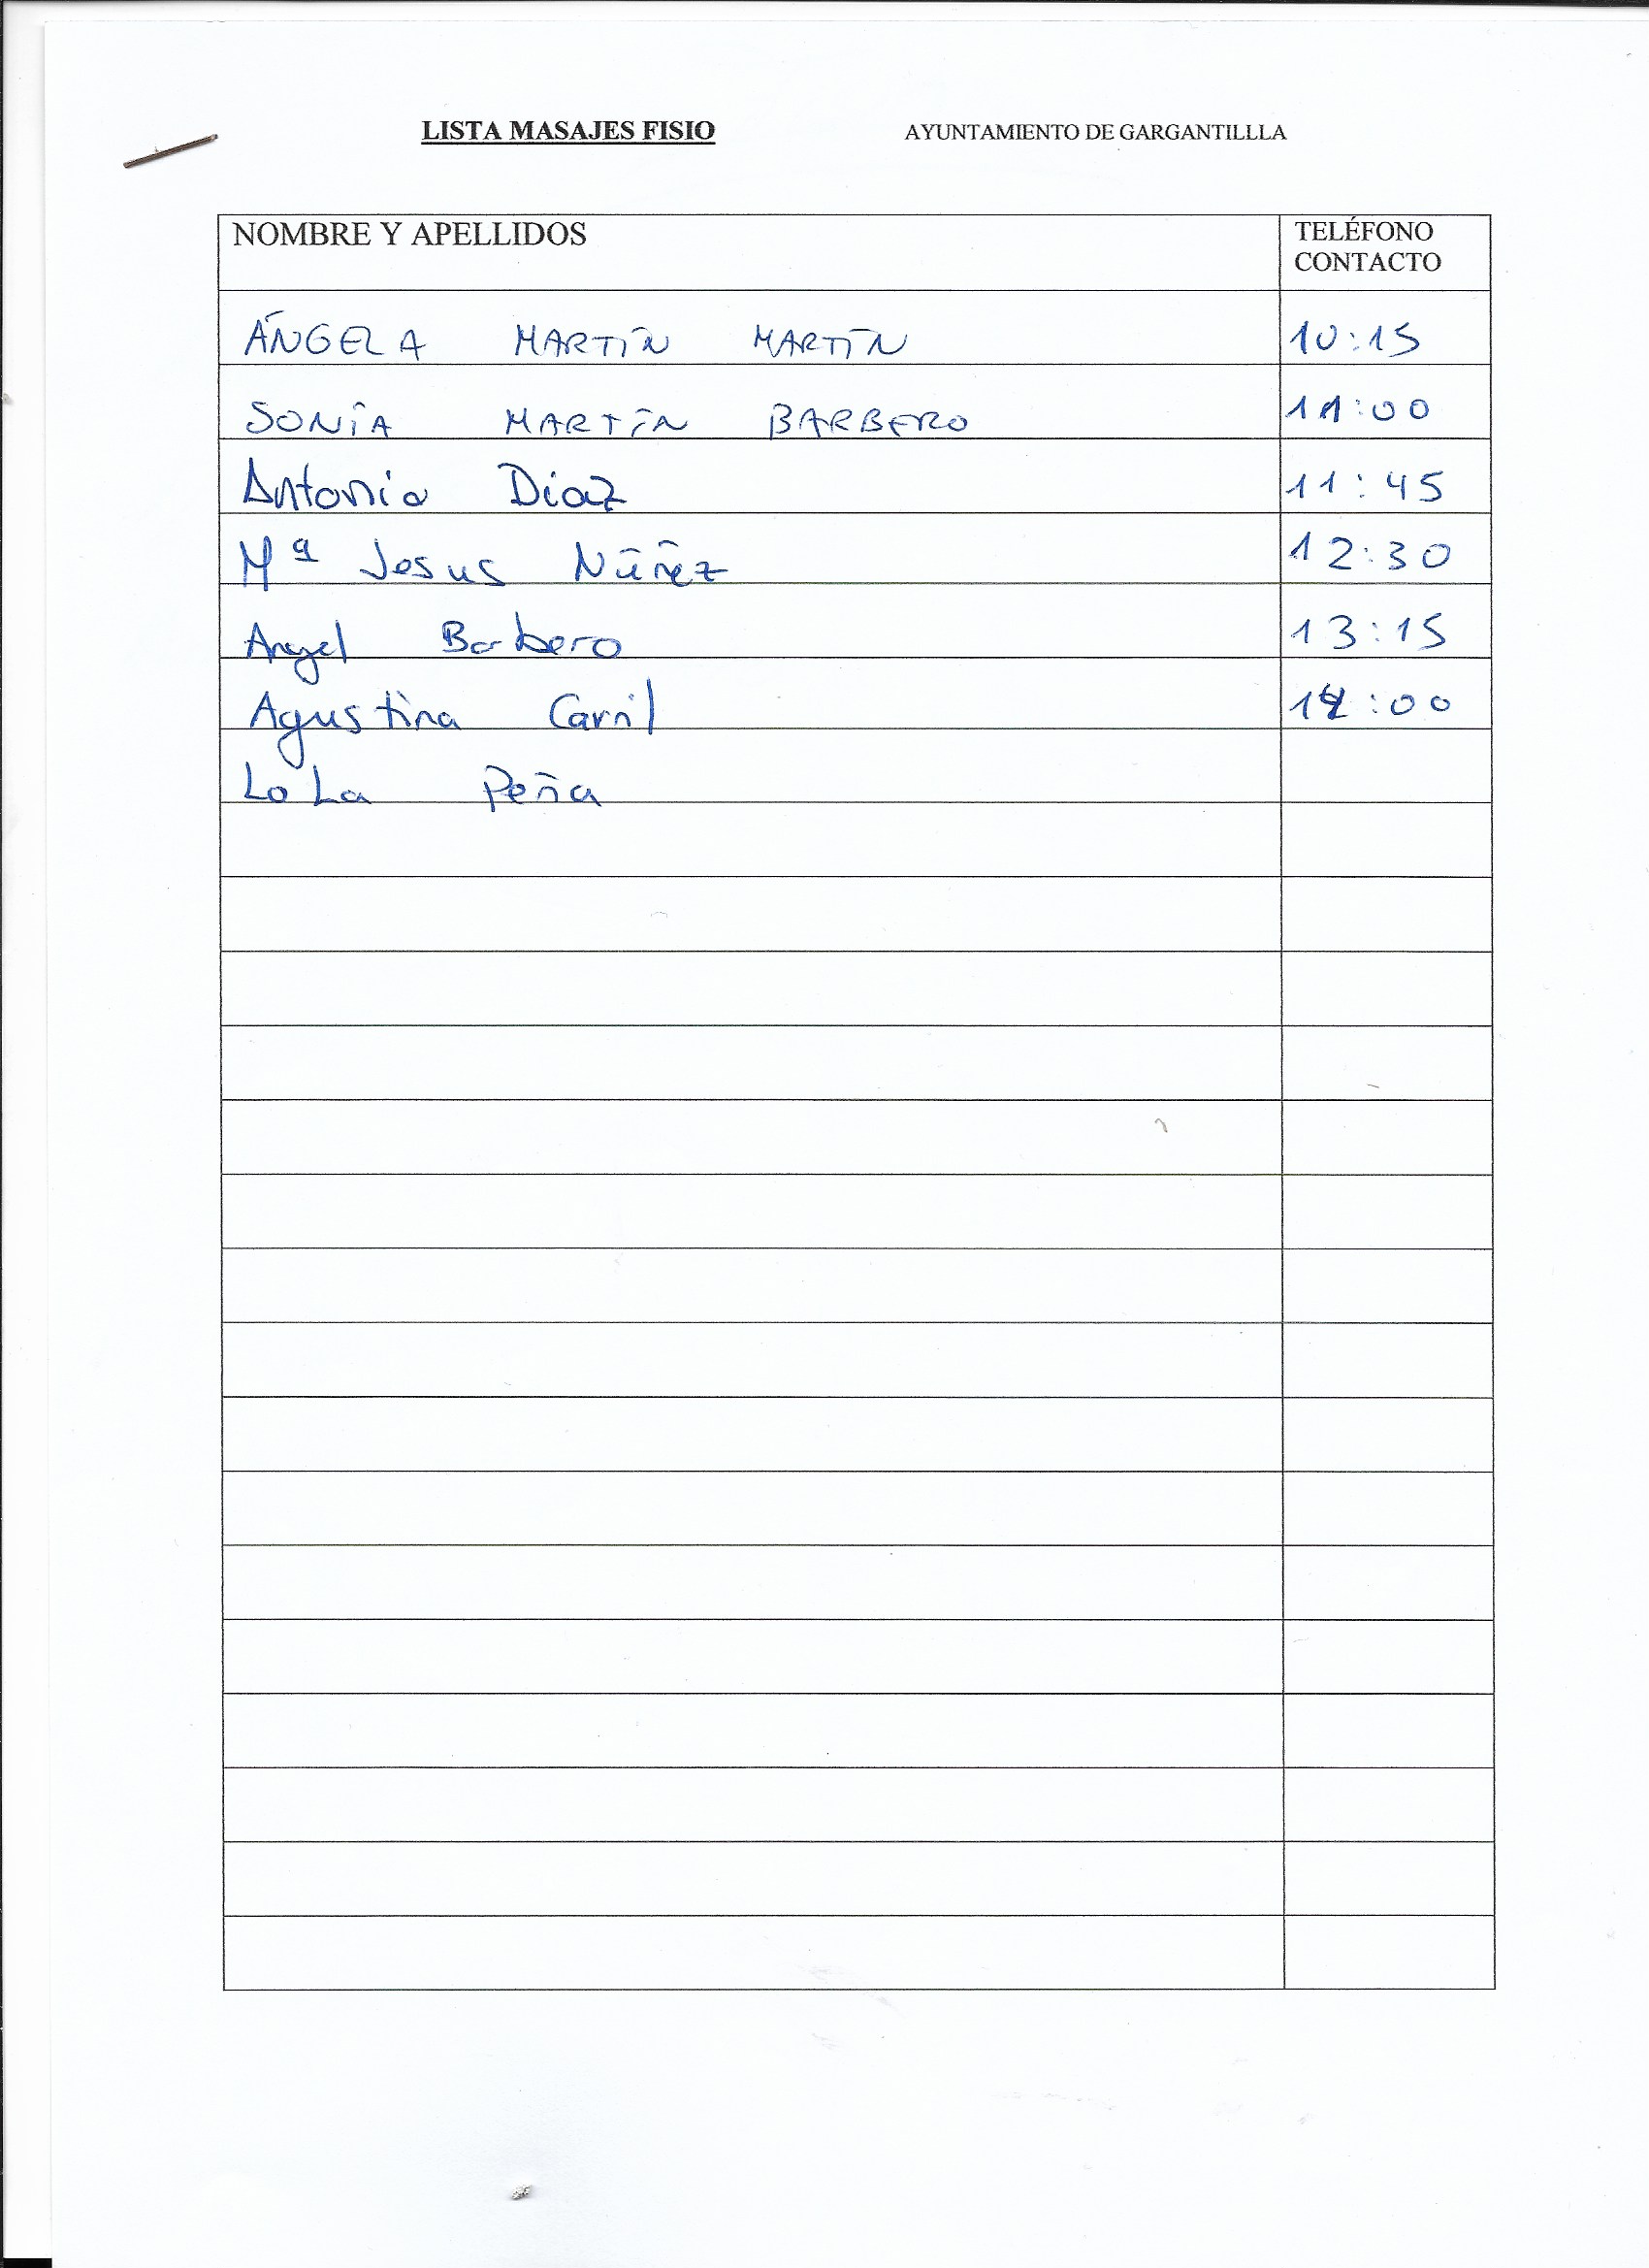 LISTA MASAJES FISIO AYUNTAMIENTO DE GARGANTILLLA
NOMBRE Y APELLIDOS TELÉFONO CONTACTO
ÁNGELA MARTÍN MARTÍN 10:15
SONIA MARTÍN BARBERO 11:00
Antonia Diaz 11:45
Mª Jesus Núñez 12:30
Angel Barbero 13:15
Agustina Carril 14:00
LoLa Peña